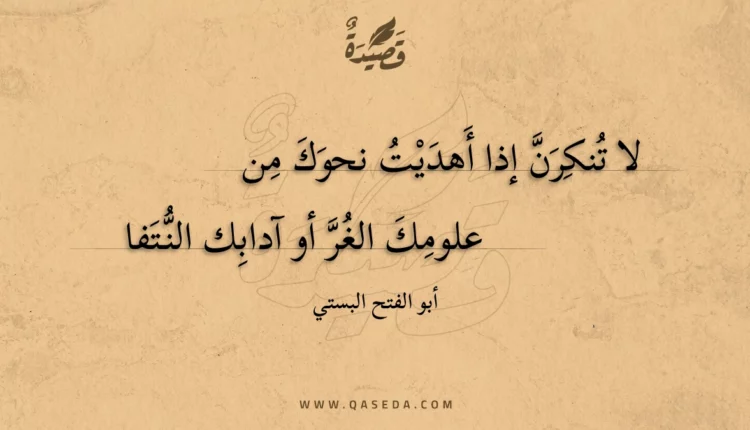 قَصِيدَةٌ
لا تُنكِرَنَّ إذا أَهدَيْتُ نحوَكَ مِن
علومِكَ الغُرَّ أو آدابِك النُّتَفا
أبو الفتح البستي
WWW.QASEDA.COM